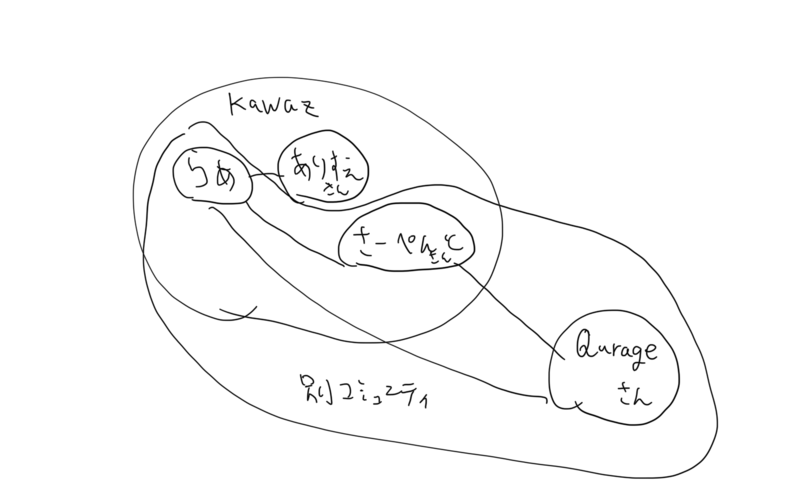 Kawaz
らめ
ありすえ
さん
さーぺんと
さん
Qurage
さん
別コミュニティ